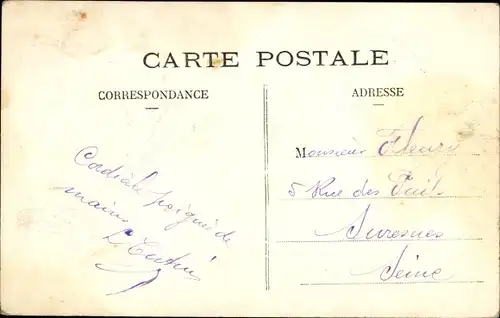 CARTE POSTALE
CORRESPONDANCE
ADRESSE
Cordiale poignée de
mains
Monsieur Fleury
5 Rue des Puits
Suresnes
Seine